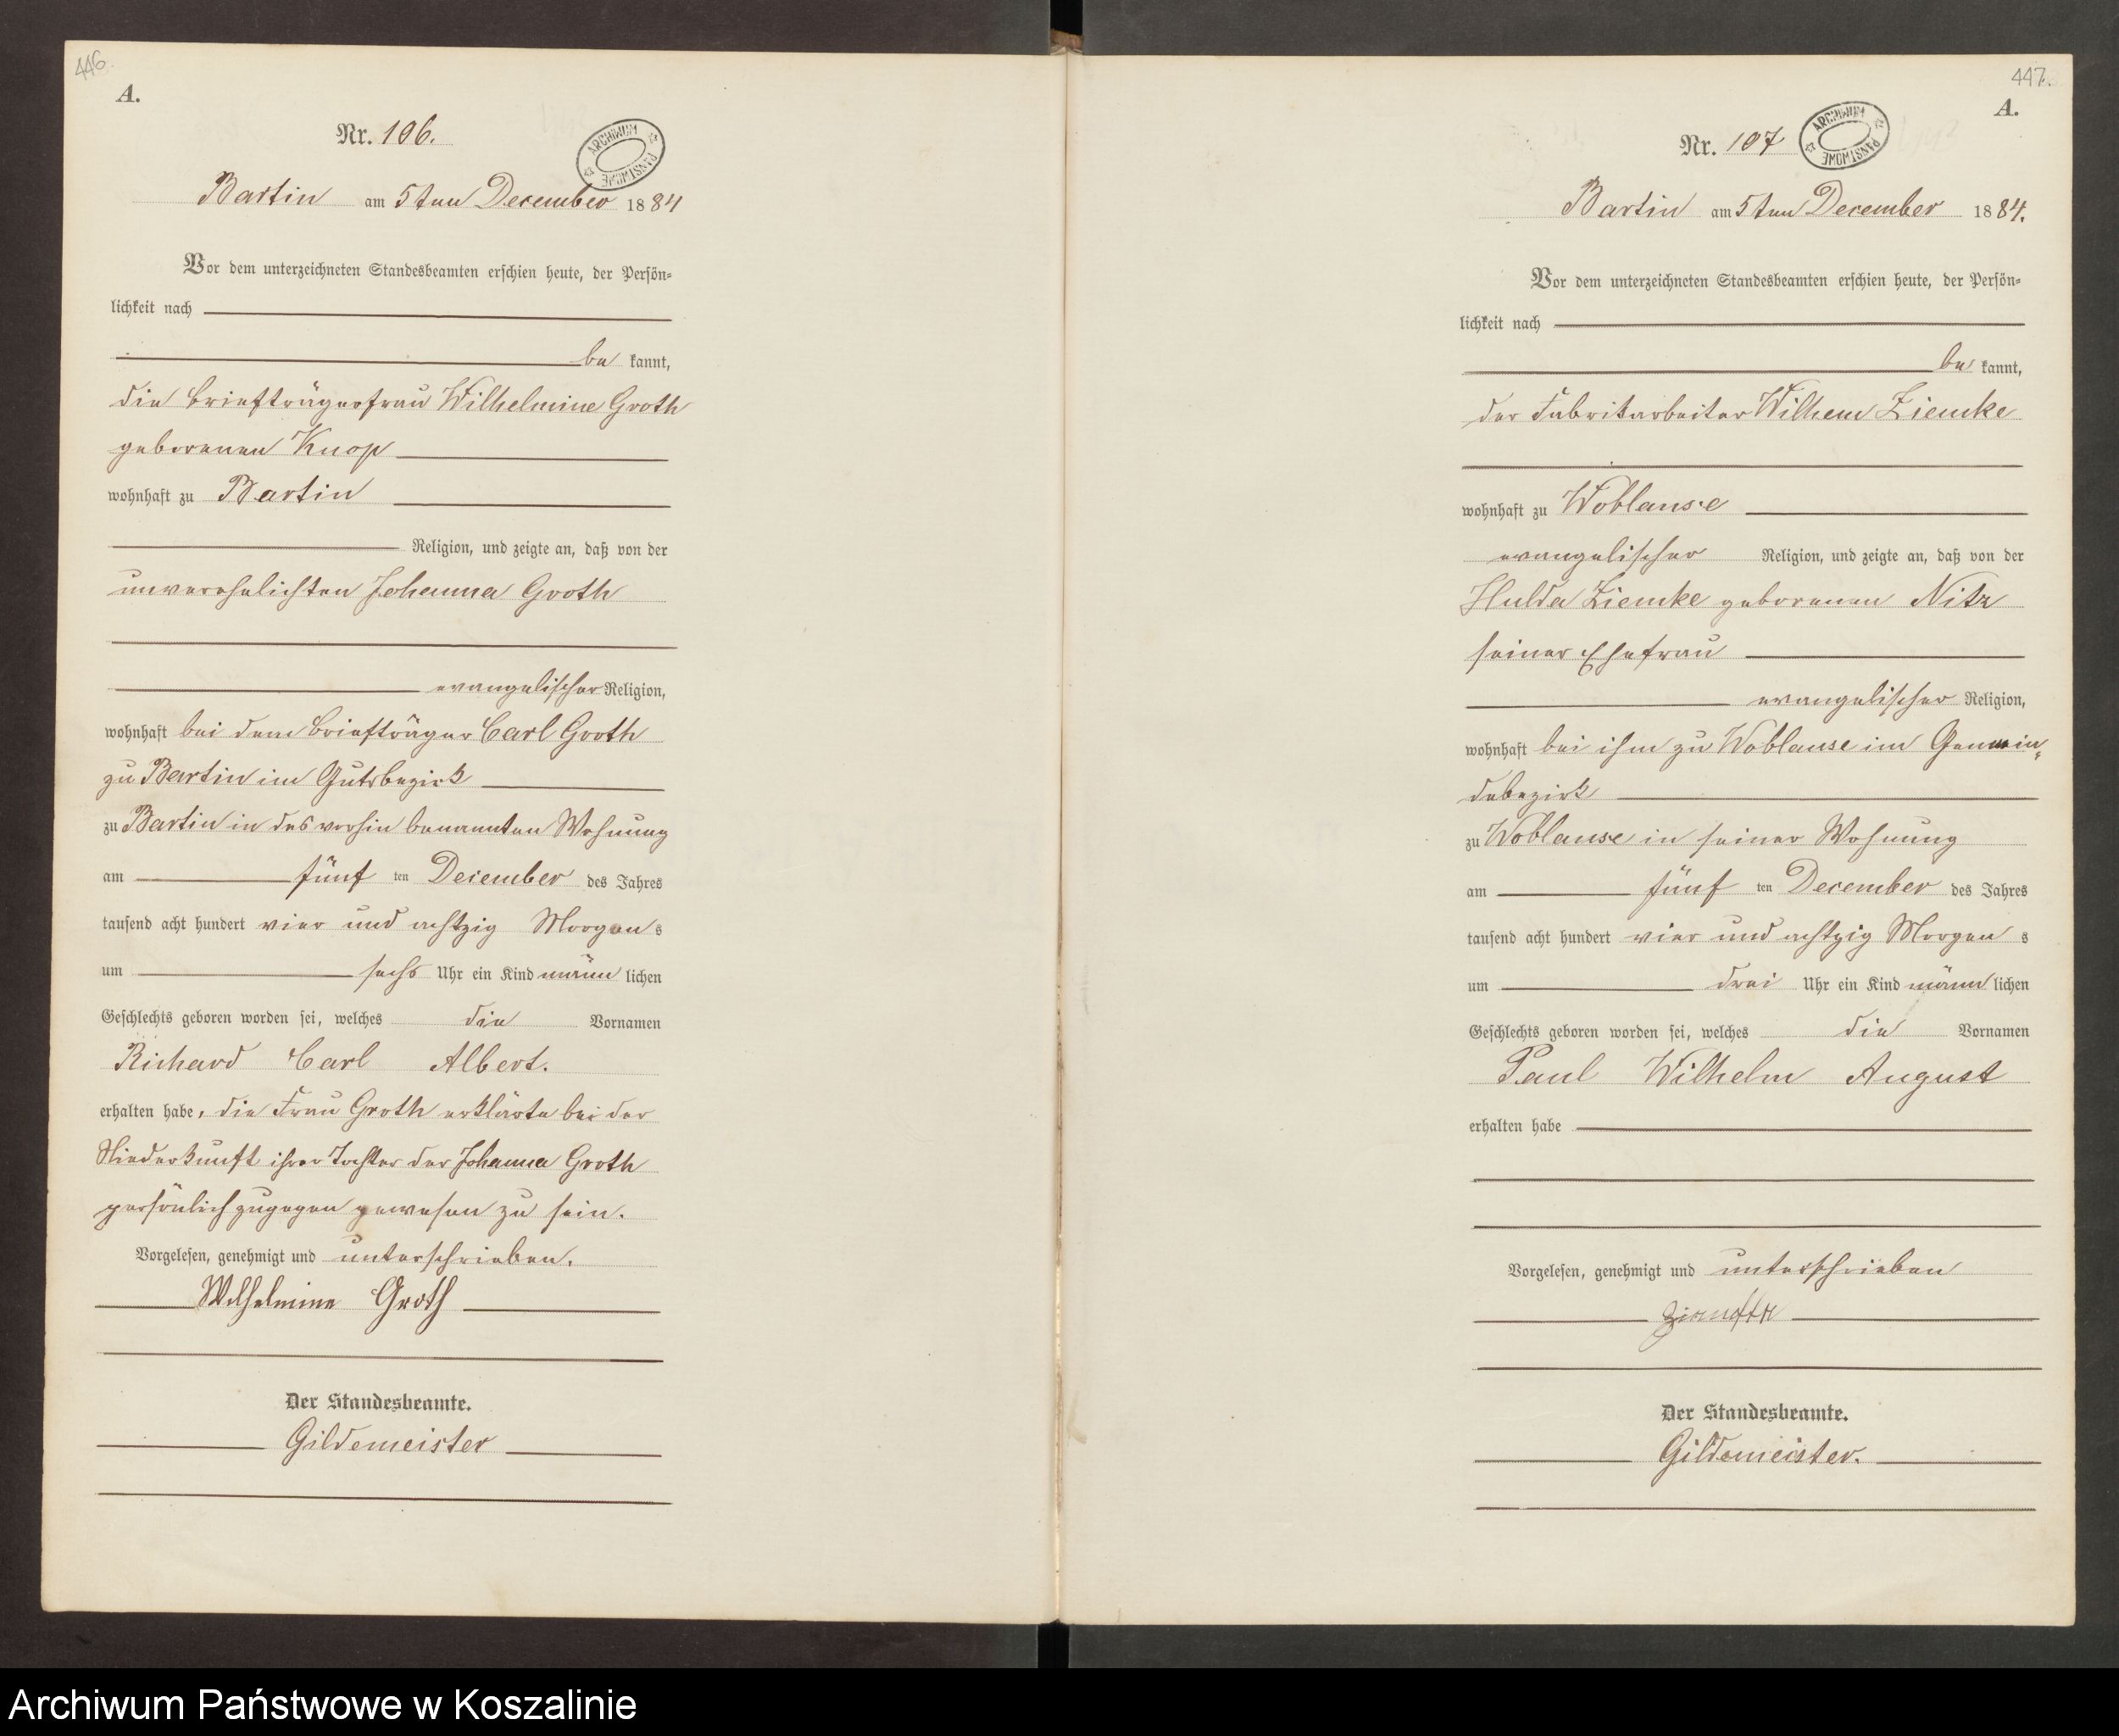 446.
A.
Nr. 106.
ARCHIWUM PAŃSTWOWE
Bartin am 5ten December 1884
Vor dem unterzeichneten Standesbeamten erschien heute, der Persön-
lichkeit nach
be kannt,
die Briefträgerfrau Wilhelmine Groth
geborenen Knop
wohnhaft zu Bartin
Religion, und zeigte an, daß von der
unverehelichten Johanna Groth
evangelischer Religion,
wohnhaft bei dem Briefträger Carl Groth
zu Bartin im Gutsbezirk
zu Bartin in des vorhin benannten Wohnung
am fünf ten December des Jahres
tausend acht hundert vier und achtzig Morgens
um sechs Uhr ein Kind männlichen
Geschlechts geboren worden sei, welches die Vornamen
Richard Carl Albert.
erhalten habe, die Frau Groth erklärte bei der
Niederkunft ihrer Tochter der Johanna Groth
persönlich zugegen gewesen zu sein.
Vorgelesen, genehmigt und unterschrieben.
Wilhelmine Groth
Der Standesbeamte.
Gildemeister
447.
A.
Nr. 107
ARCHIWUM PAŃSTWOWE
Bartin am 5ten December 1884.
Vor dem unterzeichneten Standesbeamten erschien heute, der Persön-
lichkeit nach
be kannt,
der Fabrikarbeiter Wilhem Ziemke
wohnhaft zu Woblanse
evangelischer Religion, und zeigte an, daß von der
Hulda Ziemke geborenen Nitz
seiner Ehefrau
evangelischer Religion,
wohnhaft bei ihm zu Woblanse im Gemein„
debezirk
zu Woblanse in seiner Wohnung
am fünf ten December des Jahres
tausend acht hundert vier und achtzig Morgen s
um drei Uhr ein Kind männlichen
Geschlechts geboren worden sei, welches die Vornamen
Paul Wilhelm August
erhalten habe
Vorgelesen, genehmigt und unterschrieben
Ziemke
Der Standesbeamte.
Gildemeister.
Archiwum Państwowe w Koszalinie